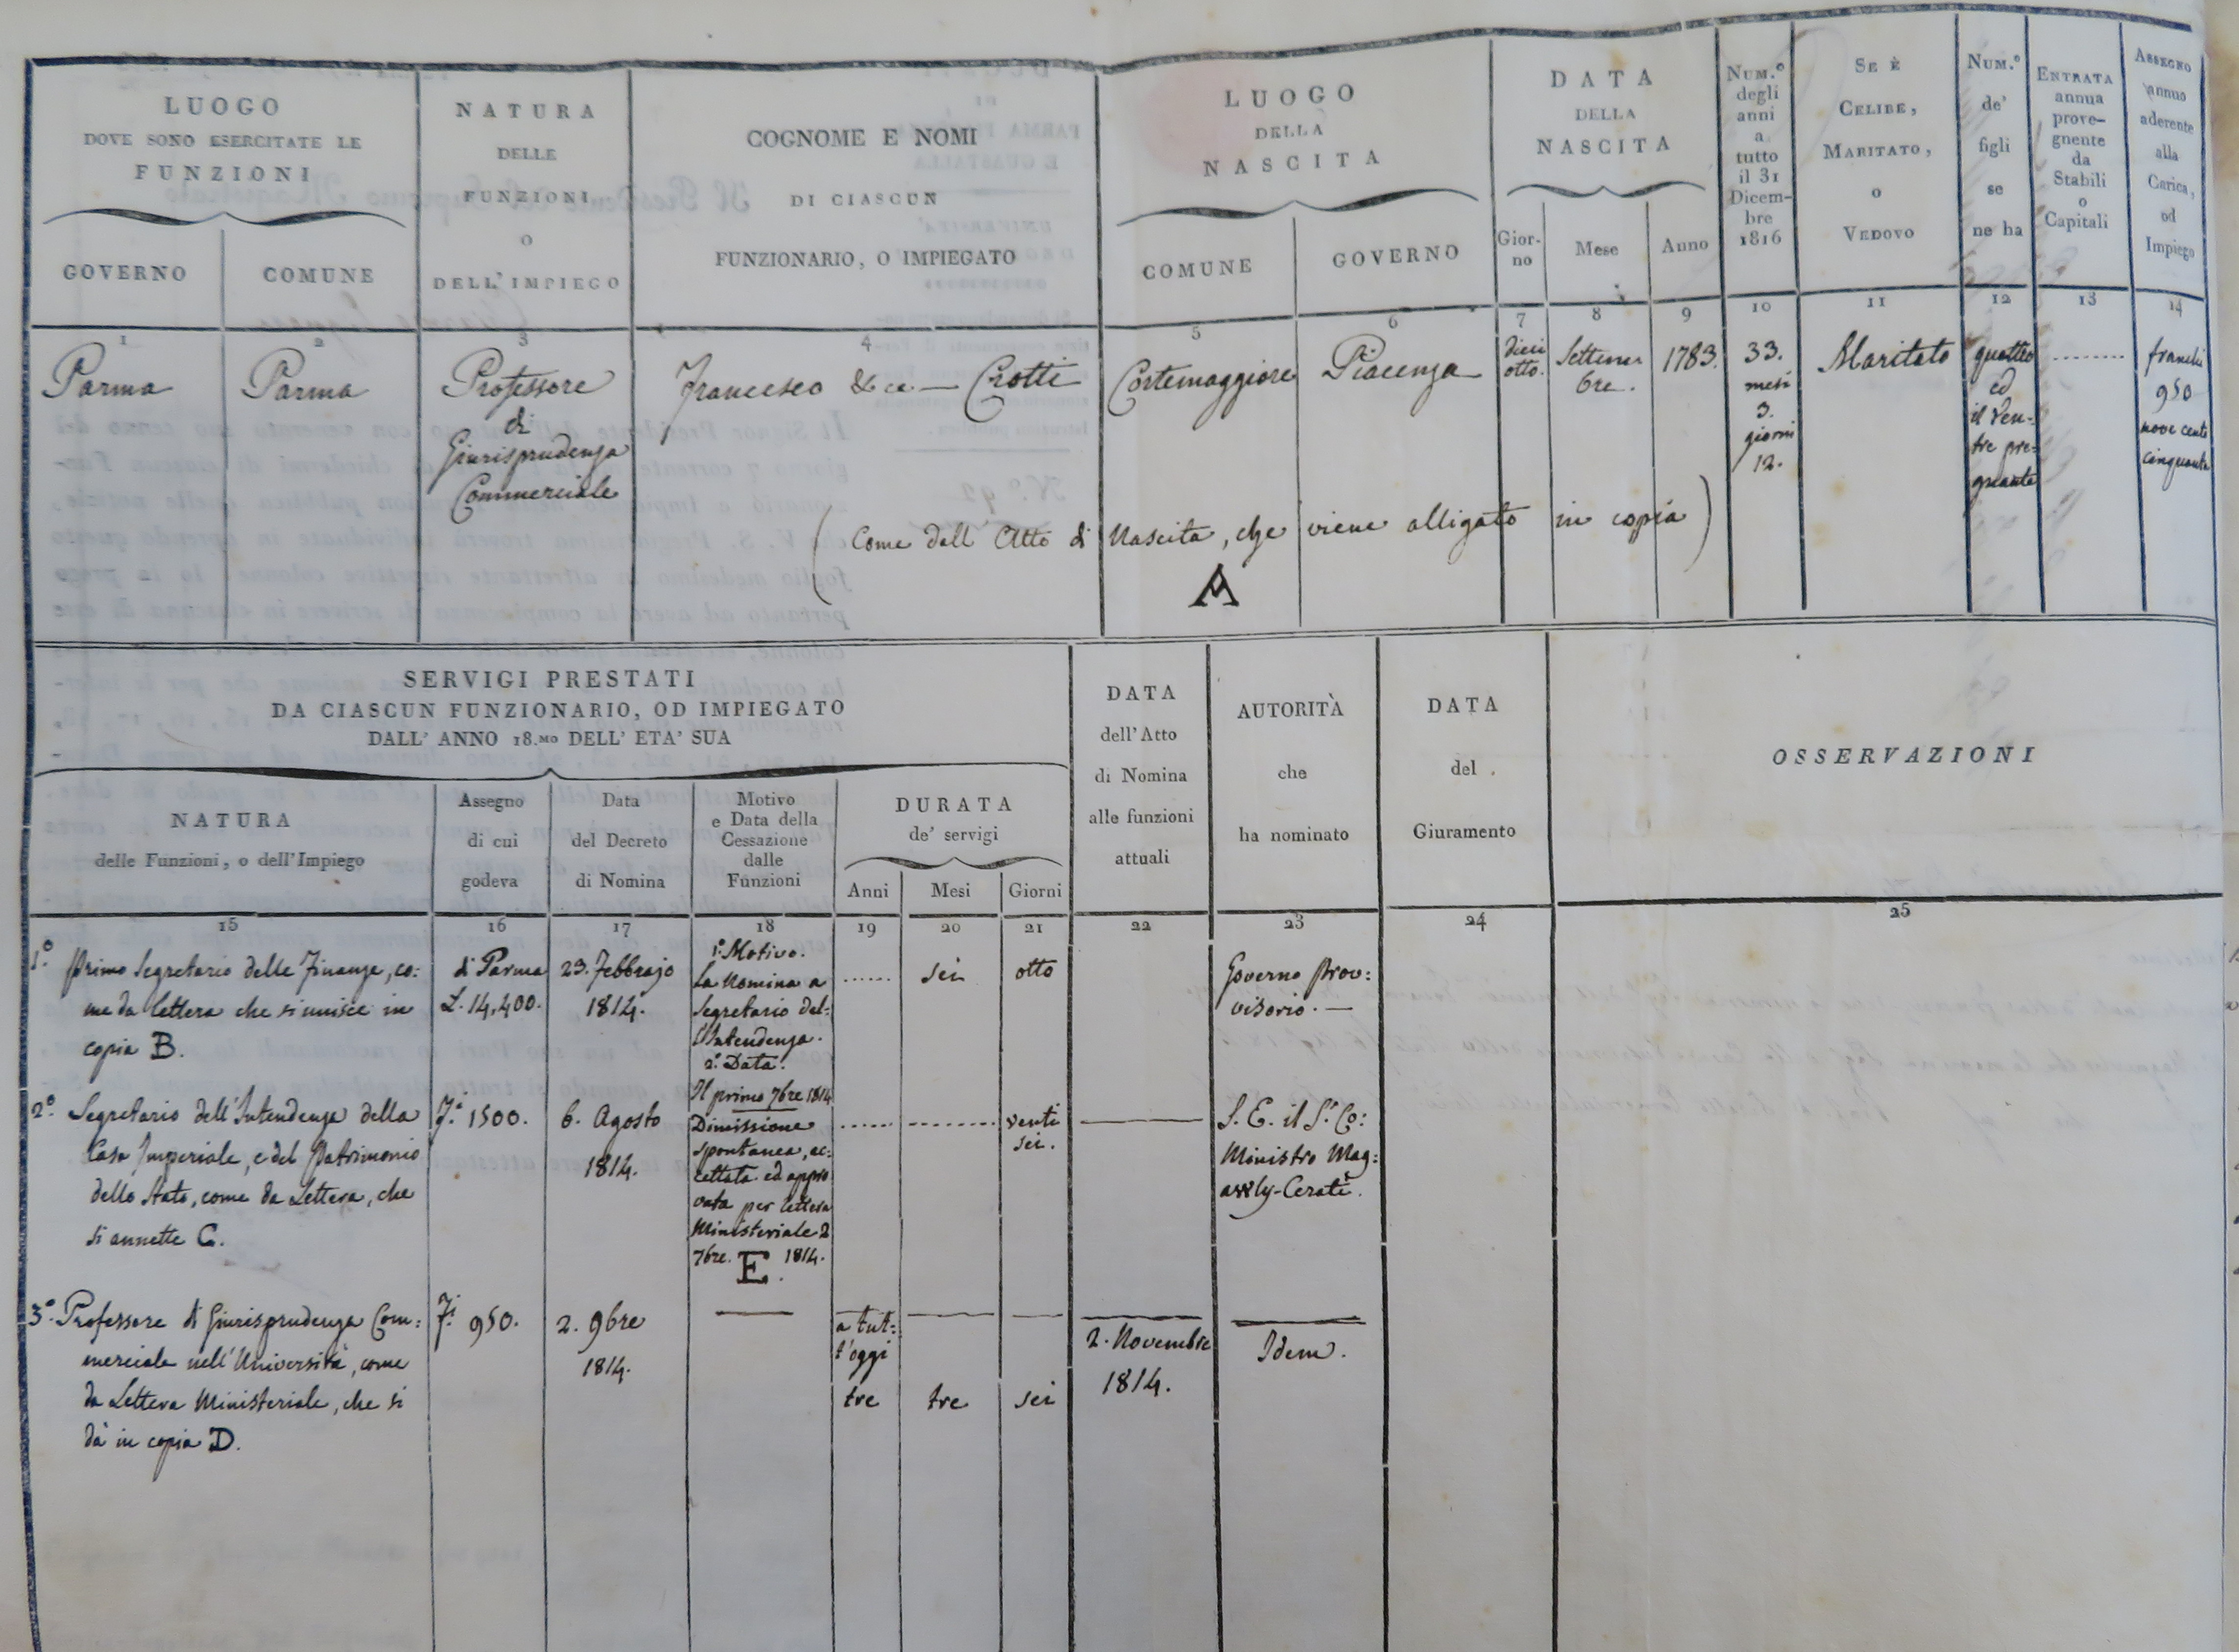 LUOGO
DOVE SONO ESERCITATE LE
FUNZIONI
GOVERNO
COMUNE
NATURA
DELLE
FUNZIONI
O
DELL' IMPIEGO
COGNOME E NOMI
DI CIASCUN
FUNZIONARIO, O IMPIEGATO
LUOGO
DELLA
NASCITA
COMUNE
GOVERNO
DATA
DELLA
NASCITA
Gior-
no
Mese
Anno
NUM.º
degli
anni
a
tutto
il 31
Dicem-
bre
1816
SE È
CELIBE,
MARITATO,
O
VEDOVO
NUM.º
de'
figli
se
ne ha
ENTRATA
annua
prove-
gnente
da
Stabili
o
Capitali
ASSEGNO
annuo
aderente
alla
Carica,
od
Impiego
1 2 3 4 5 6 7 8 9 10 11 12 13 14
Parma
Parma
Professore
di
Giurisprudenza
Commerciale
Francesco &c ca. — Crotti
Cortemaggiore
Piacenza
dieci
otto.
Settem
bre.
1783.
33.
mesi
3.
giorni
12.
Maritato
quattro
ed
il ven-
tre pre-
gnante
........
franchi
950
nove cento
cinquanta
(Come dall' Atto di Nascita, che viene alligato in copia)
A
SERVIGI PRESTATI
DA CIASCUN FUNZIONARIO, OD IMPIEGATO
DALL' ANNO 18.MO DELL' ETA' SUA
NATURA
delle Funzioni, o dell'Impiego
Assegno
di cui
godeva
Data
del Decreto
di Nomina
Motivo
e Data della
Cessazione
dalle
Funzioni
DURATA
de' servigi
Anni
Mesi
Giorni
DATA
dell'Atto
di Nomina
alle funzioni
attuali
AUTORITÀ
che
ha nominato
DATA
del
Giuramento
OSSERVAZIONI
15 16 17 18 19 20 21 22 23 24 25
1.º Primo Segretario delle Finanze, co:
me da lettera che si unisce in
copia B.
di Parma
L. 14,400.
23. Febbrajo
1814.
1.º Motivo.
La Nomina a
Segretario del:
l'Intendenza.
2.º Data.
Il primo 7bre 1814
......
sei
otto
Governo Prov:
visorio. —
2.º Segretario dell'Intendenza della
Casa Imperiale, e del Patrimonio
dello Stato, come da Lettera, che
si annette C.
F.i 1500.
6. Agosto
1814.
Dimissione
spontanea, ac:
cettata ed appro
vata per lettera
Ministeriale 2
7bre. E. 1814.
......
........
venti
sei.
S. E. il S.r Co:
Ministro Mag:
awly-Cerati.
3.º Professore di Giurisprudenza Com:
merciale nell'Università, come
da Lettera Ministeriale, che si
dà in copia D.
F.i 950.
2. 9bre
1814.
a tut:
t'oggi
tre
tre
sei
2. Novembre
1814.
Idem.